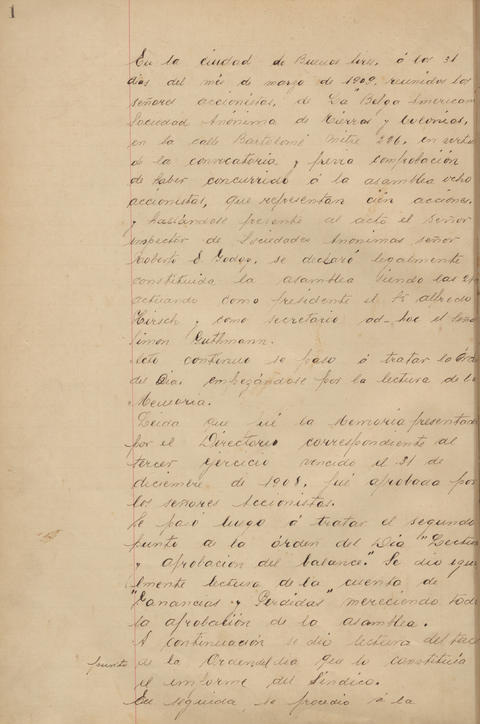 1
En la ciudad de Buenos Aires, á los 31
dias del més de marzo de 1909, reunidos los
señores accionistas, de "La Belga Americana
Sociedad Anónima de Tierras y Colonias,
en la calle Bartolomé Mitre 226, en virtud
de la convocatoria y previa comprobación
de haber concurrido á la asamblea ocho
accionistas, que representan cién acciones,
y hallándose presente al acto el Señor
Inspector de Sociedades Anónimas señor
Roberto E. Godoy, se declaró legalmente
constituida la asamblea siendo las
actuando como presidente el Sr Alfredo
Hirsch y como secretario ad-hoc el señor
Simon Guthmann.
Acto continuo se paso á tratar la Orden
del Dia, empezándose por la lectura de la
Memoria.
Leida que fué la Memoria presentada
por el Directorio correspondiente al
tercer ejercicio vencido el 31 de
diciembre de 1908, fué aprobada por
los señores Accionistas.
Se paso luego á tratar el segundo
punto de la órden del Dia "Lectura
y aprobacion del balance." Se dio igual
mente lectura de la cuenta de
"Ganancias y Perdidas" mereciendo toda
la aprobación de la asamblea.
A continuación se dio lectura del
punto de la Orden del dia que lo constituía
el informe del Síndico.
En seguida, se procedio á la